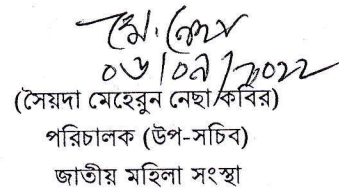 ০৬/০৯/২০২২
(সৈয়দা মেহেরুন নেছা কবির)
পরিচালক (উপ-সচিব)
জাতীয় মহিলা সংস্থা